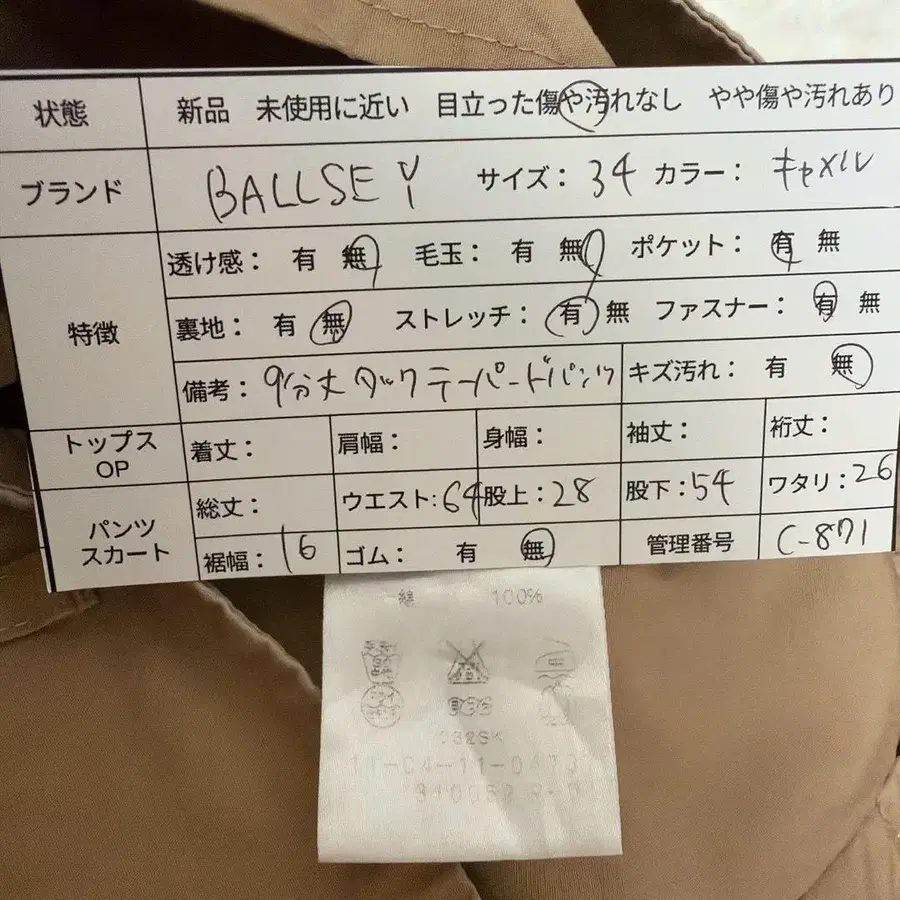 状態 新品 未使用に近い 目立った傷や汚れなし やや傷や汚れあり
ブランド BALLSEY サイズ: 34 カラー: キャメル
特徴
透け感: 有 無 毛玉: 有 無 ポケット: 有 無
裏地: 有 無 ストレッチ: 有 無 ファスナー: 有 無
備考: 9分丈タックテーパードパンツ キズ汚れ: 有 無
トップス OP
着丈: 肩幅: 身幅: 袖丈: 裄丈:
パンツ スカート
総丈: ウエスト: 64 股上: 28 股下: 54 ワタリ: 26
裾幅: 16 ゴム: 有 無 管理番号 C-871
綿 100%